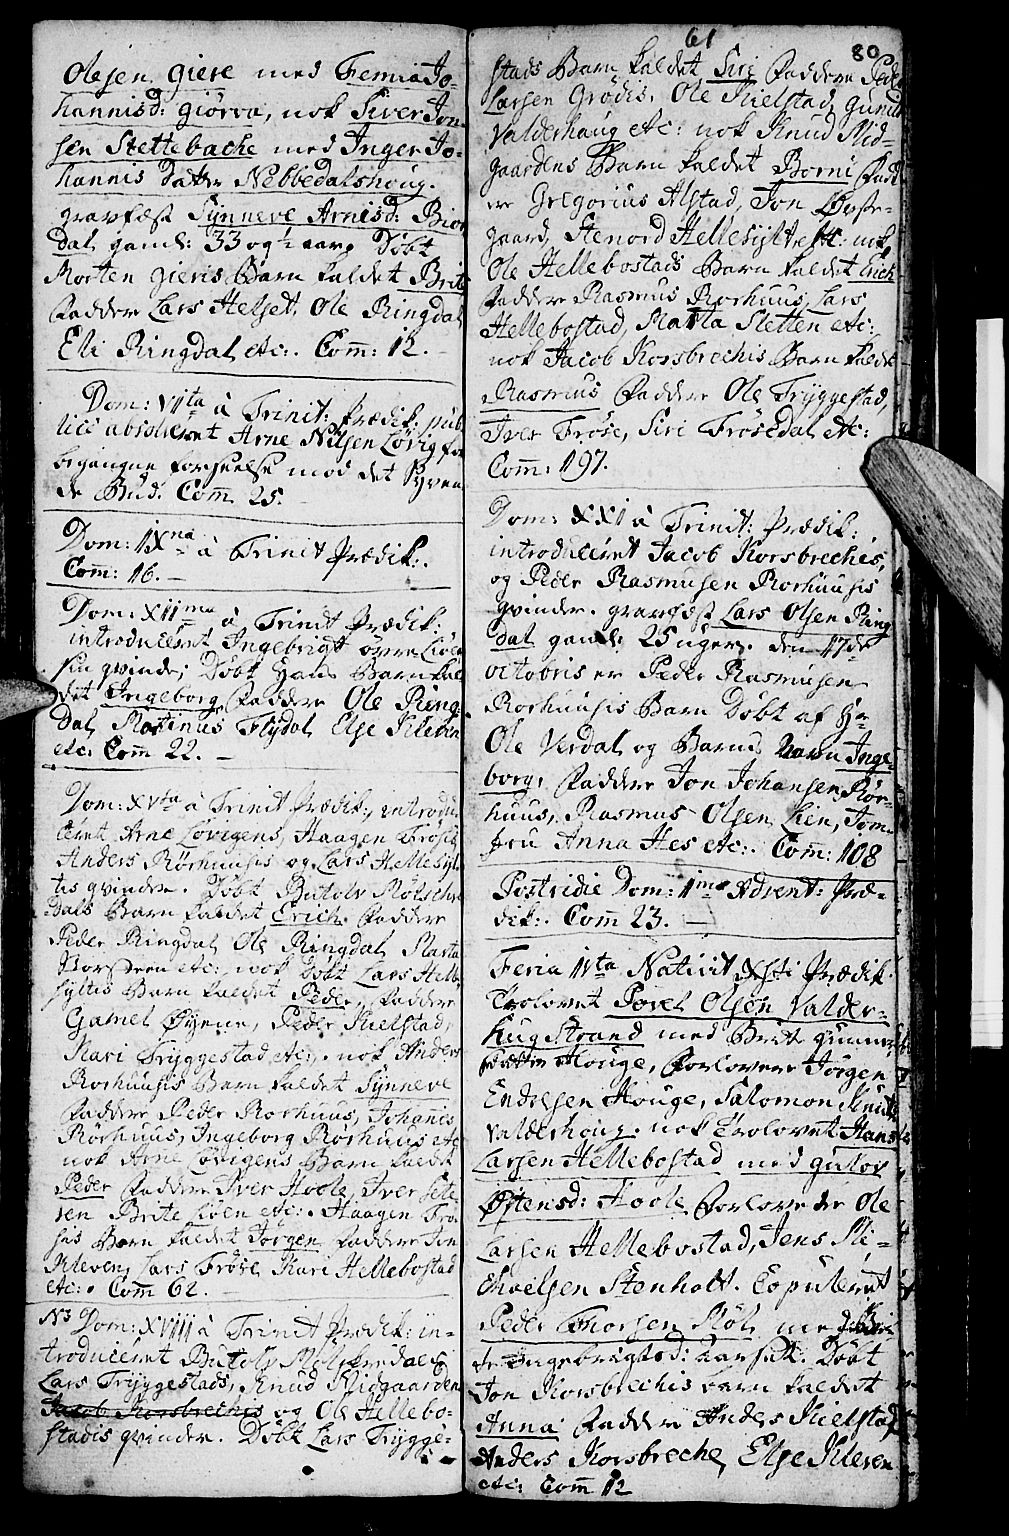 Olesen giere med Femia Jo-
hannisd: giörva, nok Siver Jon-
sen Stettebache med Inger Jo-
hannis Datter Nebbedalshoug.
gravfæst Synneve Arnisd: Bion
dal gaml: 33 og ½ aar. Döbt
Morten gieris Barn kaldet Brite
Faddere Lars Helset, Ole Ringdal
Eli Ringdal etc:. Com: 12.
Dom: VIIta à Trinit: Prædik: pub
lice absolveret Arne Nilsen Lövig for
begangne forseelse mod det Syven
de Bud. Com 25.
Dom: IXna à Trinit Prædik:.
Com: 16.
Dom: XIIma à Trinit Prædik:
introduceret Ingebrigt övre Liöe
sin qvinde; Döbt Hans Barn kal
det Ingeborg Faddere Ole Ring
dal, Matinus Flydal Else Kleven
etc: Com 22.
Dom: XVta à Trinit Prædik:, introdu
ceret Arne Lövigens, Haagen Frösis
Anders Rörhuusis og Lars Hellesyl
tis qvinder. Döbt Butolv Molschre
dals Barn kaldet Erich. Faddere
Peder Ringdal Ole Ringdal, Marta
etc: nok Döbt Lars Helle
syltis Barn kaldet Peder, Faddere
Gamel Öyene, Peder Kielstad,
Kari Tryggestad etc:. nok Anders
Rorhuusis Barn kaldet Synneve
Faddere Peder Rorhuus, Johanis
Rörhuus, Ingeborg Rörhuus etc
nok Arne Lövigens Barn kaldet
Peder Faddere Iver Hoole, Iver Sete
ren Brite Löen etc:. Haagen Frö
sis Barn kaldet Jörgen Faddere Jon
Kleven, Lars Fröse, Kari Hellebostad
etc:. Com 62.
N3 Dom: XVIII à Trinit Prædik: in-
troduceret Butolv Molskredals
Lars Tryggestads, Knud Midgaardens
Jacob Korsbrechis og Ole Hellebo-
stadis qvinder. Döbt Lars Trygge-
61
80
stads Barn kaldet Siri Faddere Peder
Larsen Grödis, Ole Kielstad, Gund
Valderhaug etc: nok Knud Mid-
gaardens Barn kaldet Borni Fadd
ere Gregorius Alstad, Jon Öyste-
gaard, Stenord Hellesylt etc: nok
Ole Hellebostads Barn kaldet Erich
Faddere Rasmus Rorhuus, Lars
Hellebostad, Marta Sletten etc:
nok Jacob Korsbrechis Barn kaldt
Rasmus Faddere Ole Tryggestad,
Iver Fröse, Siri Frösedal etc:
Com: 197.
Dom: XXI à Trinit: Prædik:
introduceret Jacob Korsbrechis,
og Peder Rasmusen Rorhuusis
qvinder. gravfæst Lars Olsen Ring
dal gaml: 25 uger. den 17de
octobris er Peder Rasmusen
Rorhuusis Barn Döbt af Hr
Ole Verdal og Barns Navn Inge-
borg, Faddere Jon Johansen Rör-
huus, Rasmus Olsen Lien, Jom
fru Anna Hes etc:. Com: 108
Postridie Dom: 1ma Advent: Præ-
dik:. Com 23.
Feria IVta Nativit Xsti Prædik.
Trolovet Povel Olsön Valder-
hug Strand med Brite Gunner
datter Houge, Forlovere Jörgen
Endresen Houge, Salomon Knuds
Valderhoug. nok Trolovet Hans
Larsen Hellebostad med Gulov
Östensd: Hoole Forlovere Ole
Larsen Hellebostad, Jens Mi-
chaelsen Stenholt. Copuleret
Peder Thorsen Möl, med Bri
te Ingebrigtsd: Aarsæt. Döbt
Jon Korsbrechis barn kaldet
Anna Faddere Anders Kielstad
Anders Korsbreche, Else Kleven
etc: Com 12